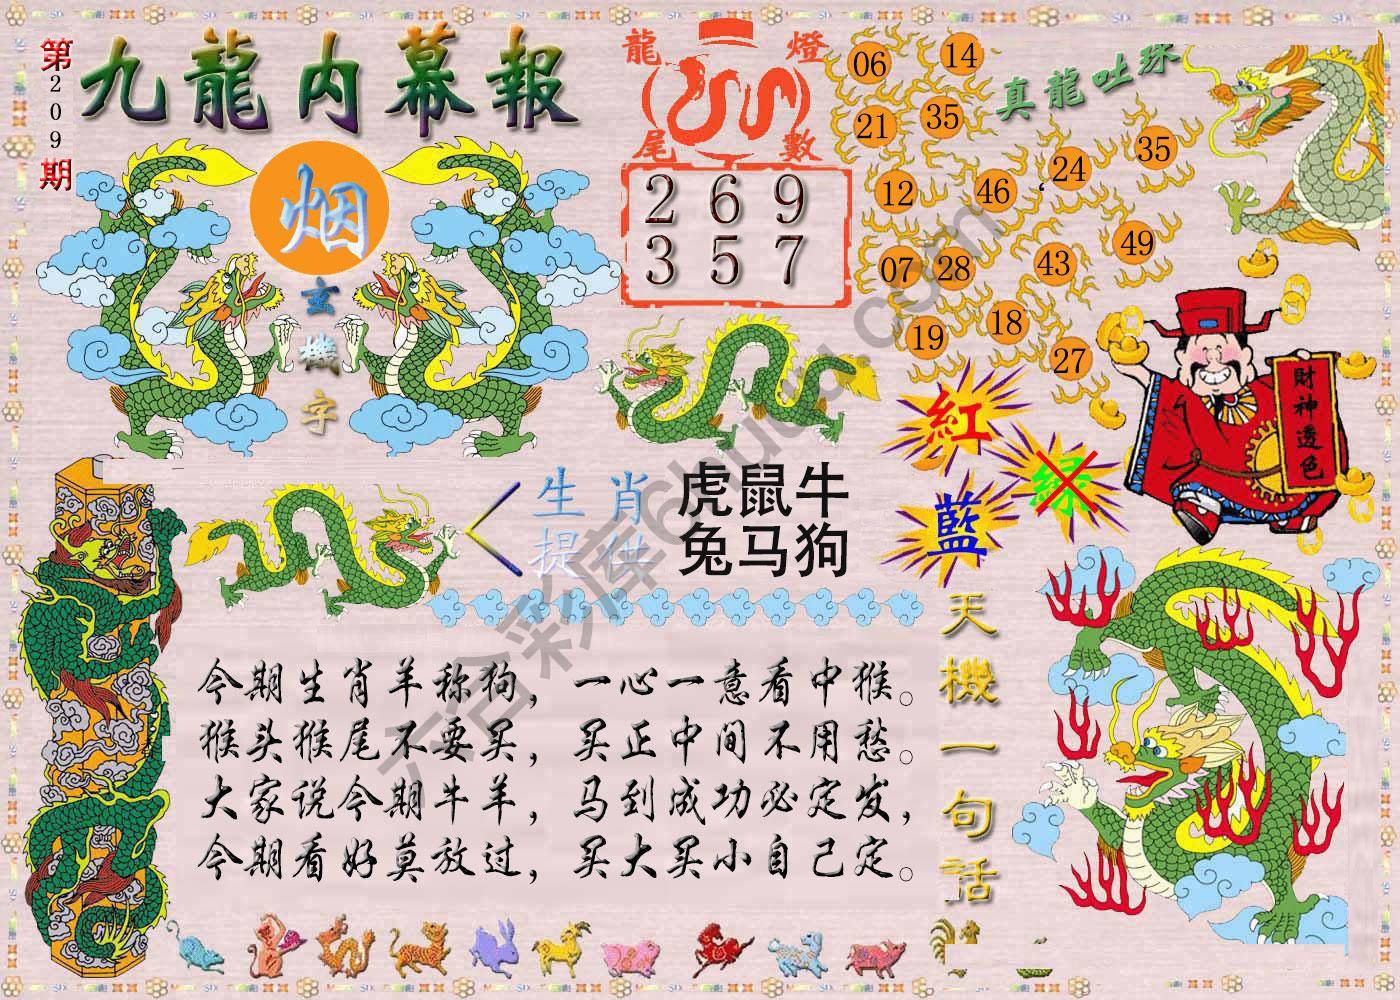 第209期
九龍内幕報
烟
玄機字
龍燈尾數
2 6 9
3 5 7
06
14
21
35
12
46
24
35
07
28
43
49
19
18
27
真龍吐珠
財神透色
紅
藍
绿
生肖
提供
虎鼠牛
兔马狗
天機一句話
今期生肖羊称狗，一心一意看中猴。
猴头猴尾不要买，买正中间不用愁。
大家说今期牛羊，马到成功必定发，
今期看好莫放过，买大买小自己定。
六合彩库6huuu.com